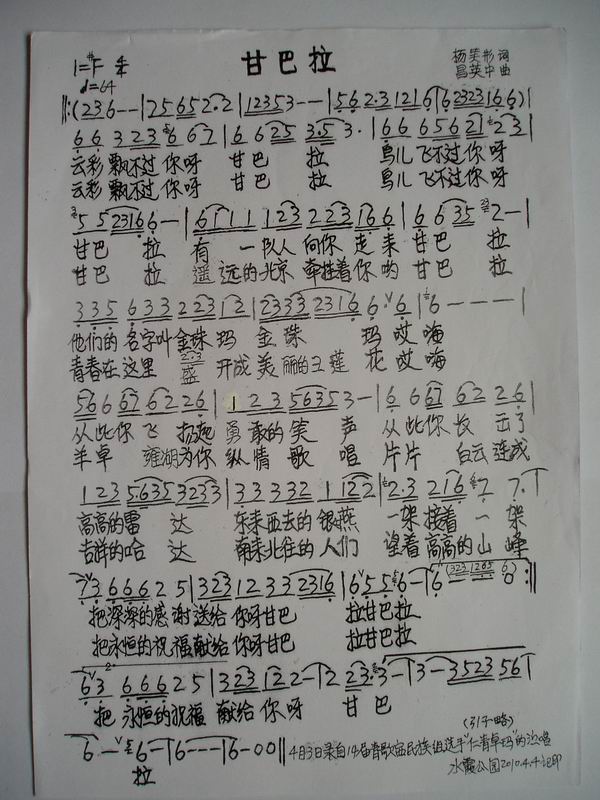 甘巴拉
1=#F 4/4
♩=64
杨笑彤 词
昌英中 曲
‖:(236--|256522·2|123533--|562·31216|623231660)|
66323#6 67|66253·53·|666562123|
云彩飘不过你呀 甘巴 拉 鸟儿飞不过你呀
云彩飘不过你呀 甘巴 拉 鸟儿飞不过你呀
5523166-|611112322 3166|6635 2-|
甘巴 拉 有 一队人向你走来 甘巴 拉
甘巴 拉 遥远的北京牵挂着你哟 甘巴 拉
335633 22312|23332316 6·6|6----|
他们的名字叫金珠玛 金珠 玛哎嗨
青春在这里盛开成美丽的玉莲花哎嗨
566676226|123563533-|6667 6226|
从此你飞扬起勇敢的笑声 从此你长出了
羊卓雍湖为你纵情歌唱 片片白云连成
123563533233|3333321122|2·32167 7·|
高高的雷达 东来西去的银燕 一架接着一架
吉祥的哈达 南来北往的人们 望着高高的山峰
73666625|32312332316|6556-|6 0:‖
把深深的感谢送给你呀甘巴 拉甘巴拉
把永恒的祝福献给你呀甘巴 拉甘巴拉
63666625|323122-|2233-|3-352356|
把永恒的祝福献给你呀 甘巴
6-6-|6---|6-00‖
拉
(31子略)
4月3日录自14届青歌赛民族组选手"仁青卓玛"的演唱
水霞公园2010.4.4记印